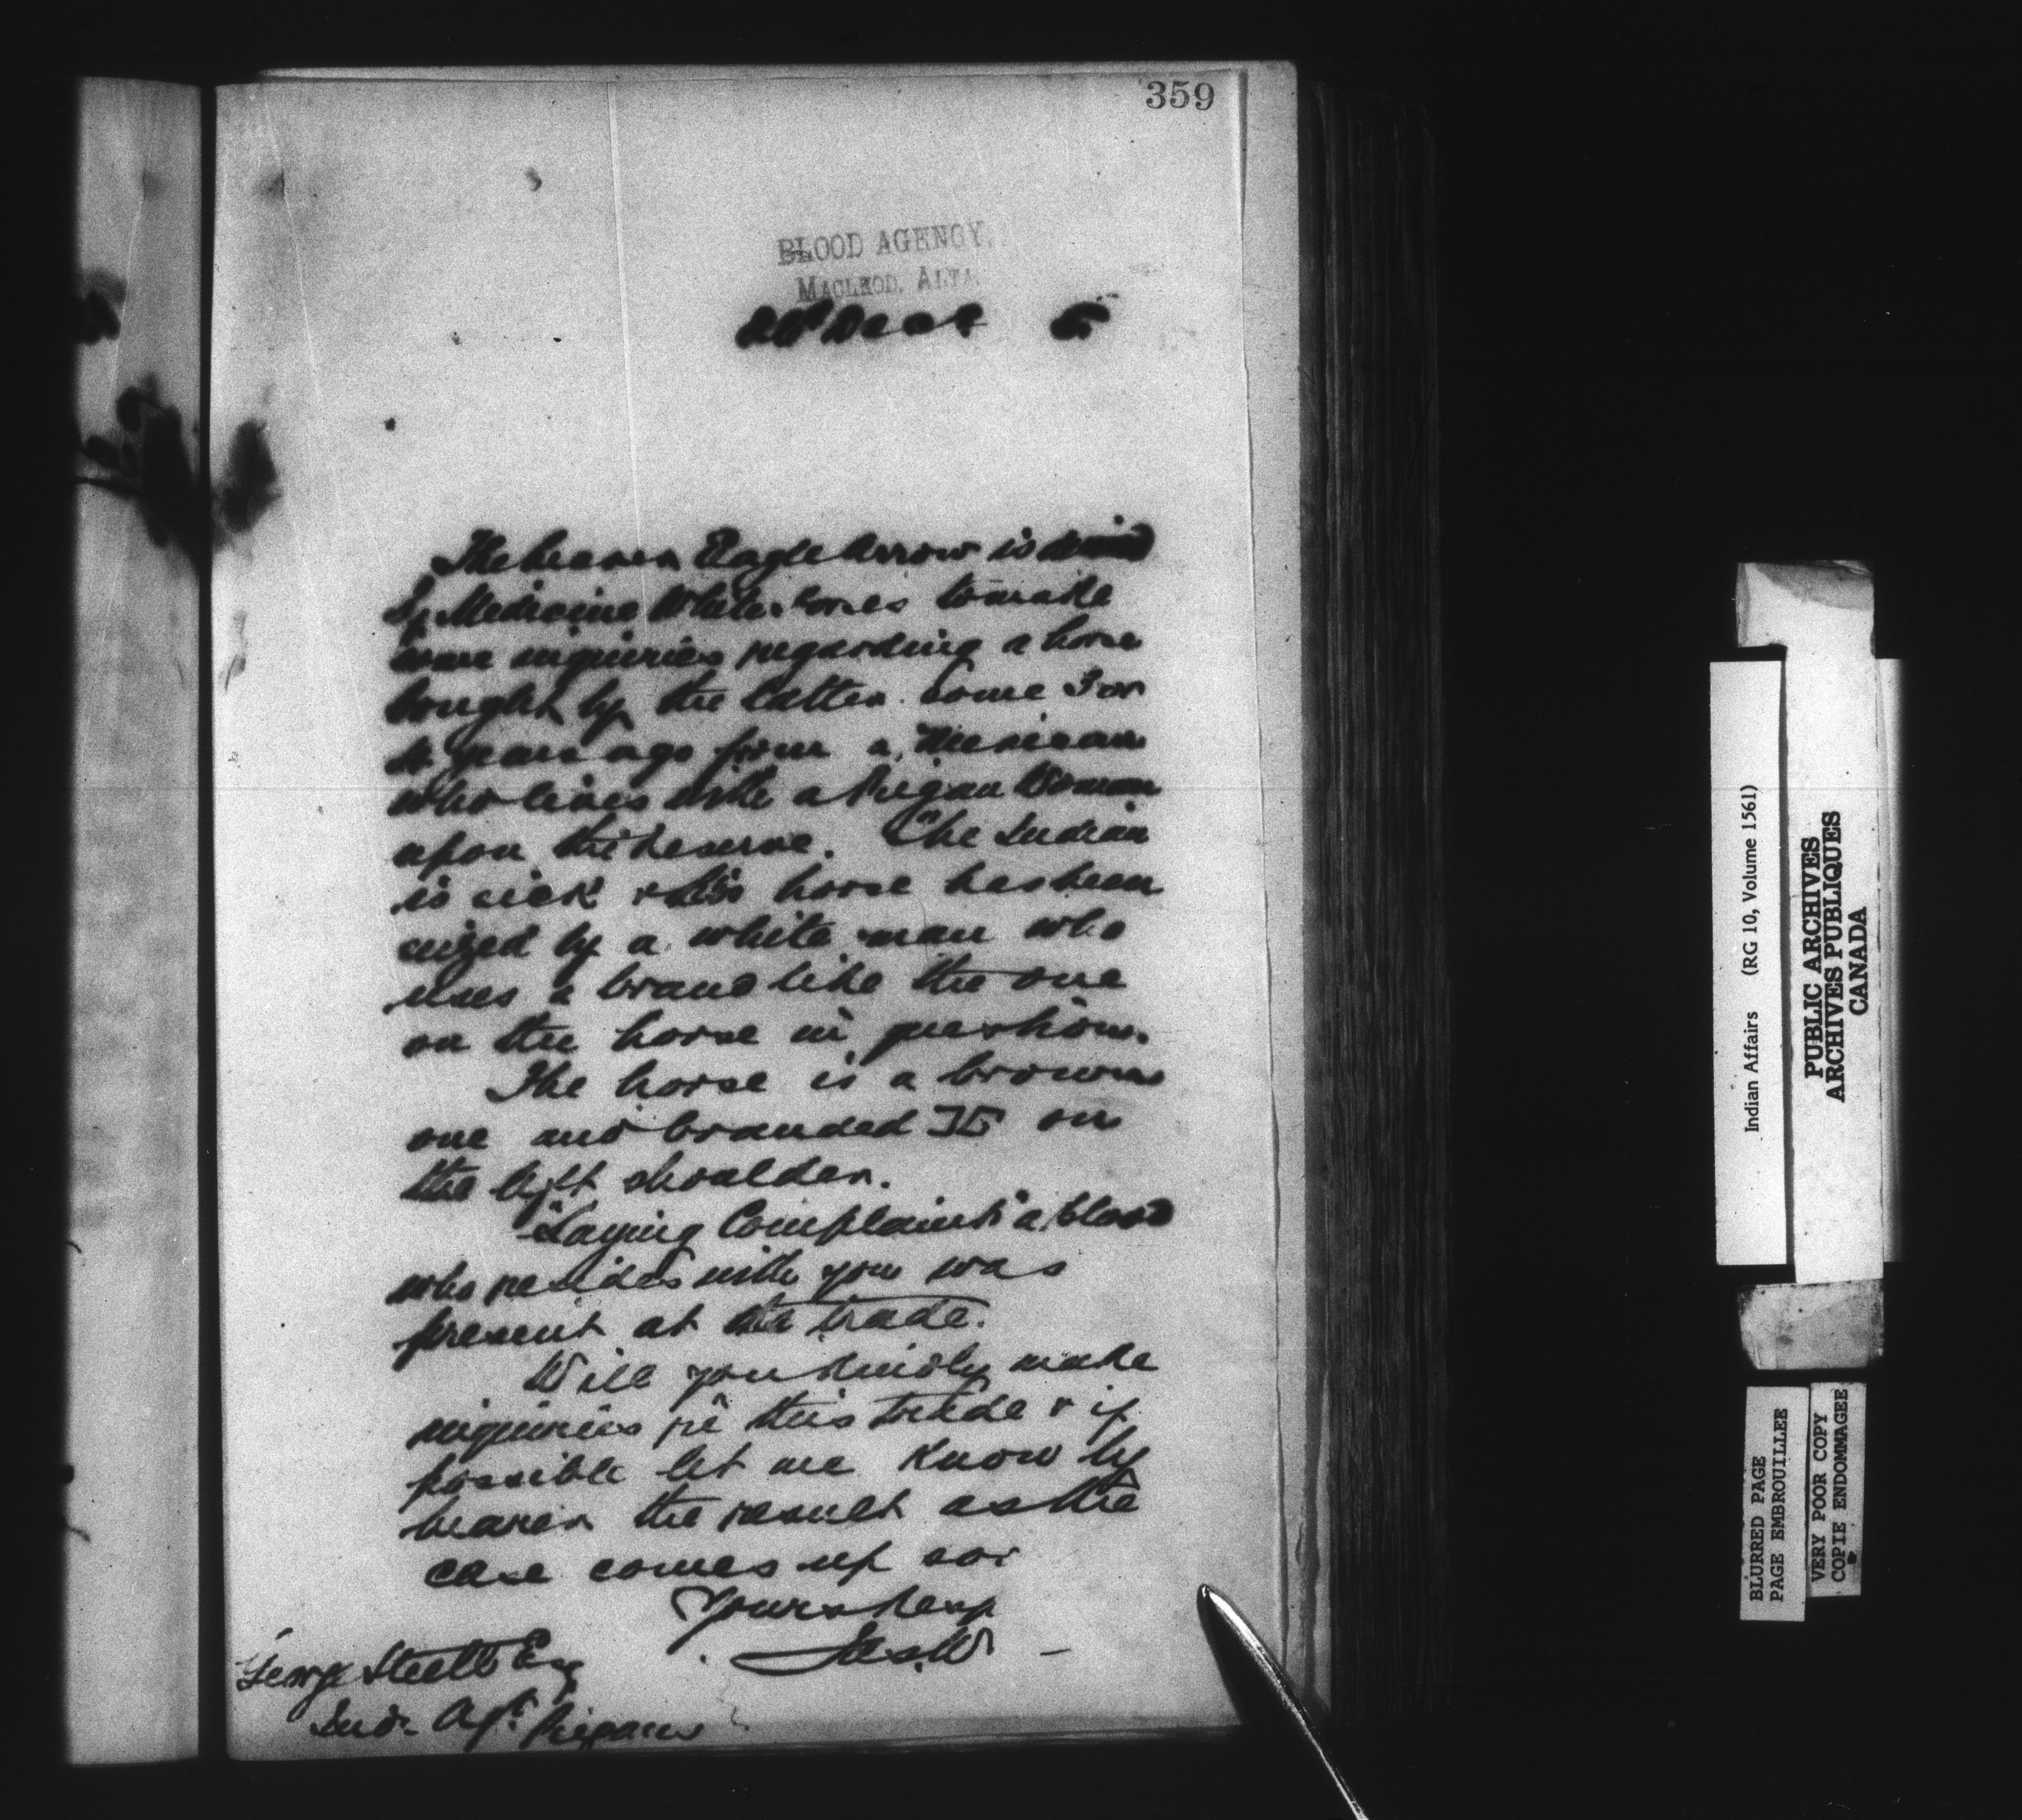 359
BLOOD AGENCY,
MACLEOD, ALTA.
The bearer Eagle Arrow is
by Medicine White Horses to make
some inquiries regarding a horse
bought by the latter some 3 or
4 years ago from a Mexican
who lives with a Piegan Woman
upon the Reserve. The Indian
is sick & his horse has been
seized by a white man who
uses a brand like the one
on the horse in question.
The horse is a brown
one and branded on
the left shoulder.
"Laying Complaint" a Blood
who resides with you was
present at the trade.
Will you kindly make
inquiries re this trade & if
possible let me know by
bearer the result as the
case comes up
Yours Resp
George Steell Esq
Ind. Agt. Piegans
Indian Affairs (RG 10, Volume 1561)
PUBLIC ARCHIVES
ARCHIVES PUBLIQUES
CANADA
BLURRED PAGE
PAGE EMBROUILLEE
VERY POOR COPY
COPIE ENDOMMAGEE